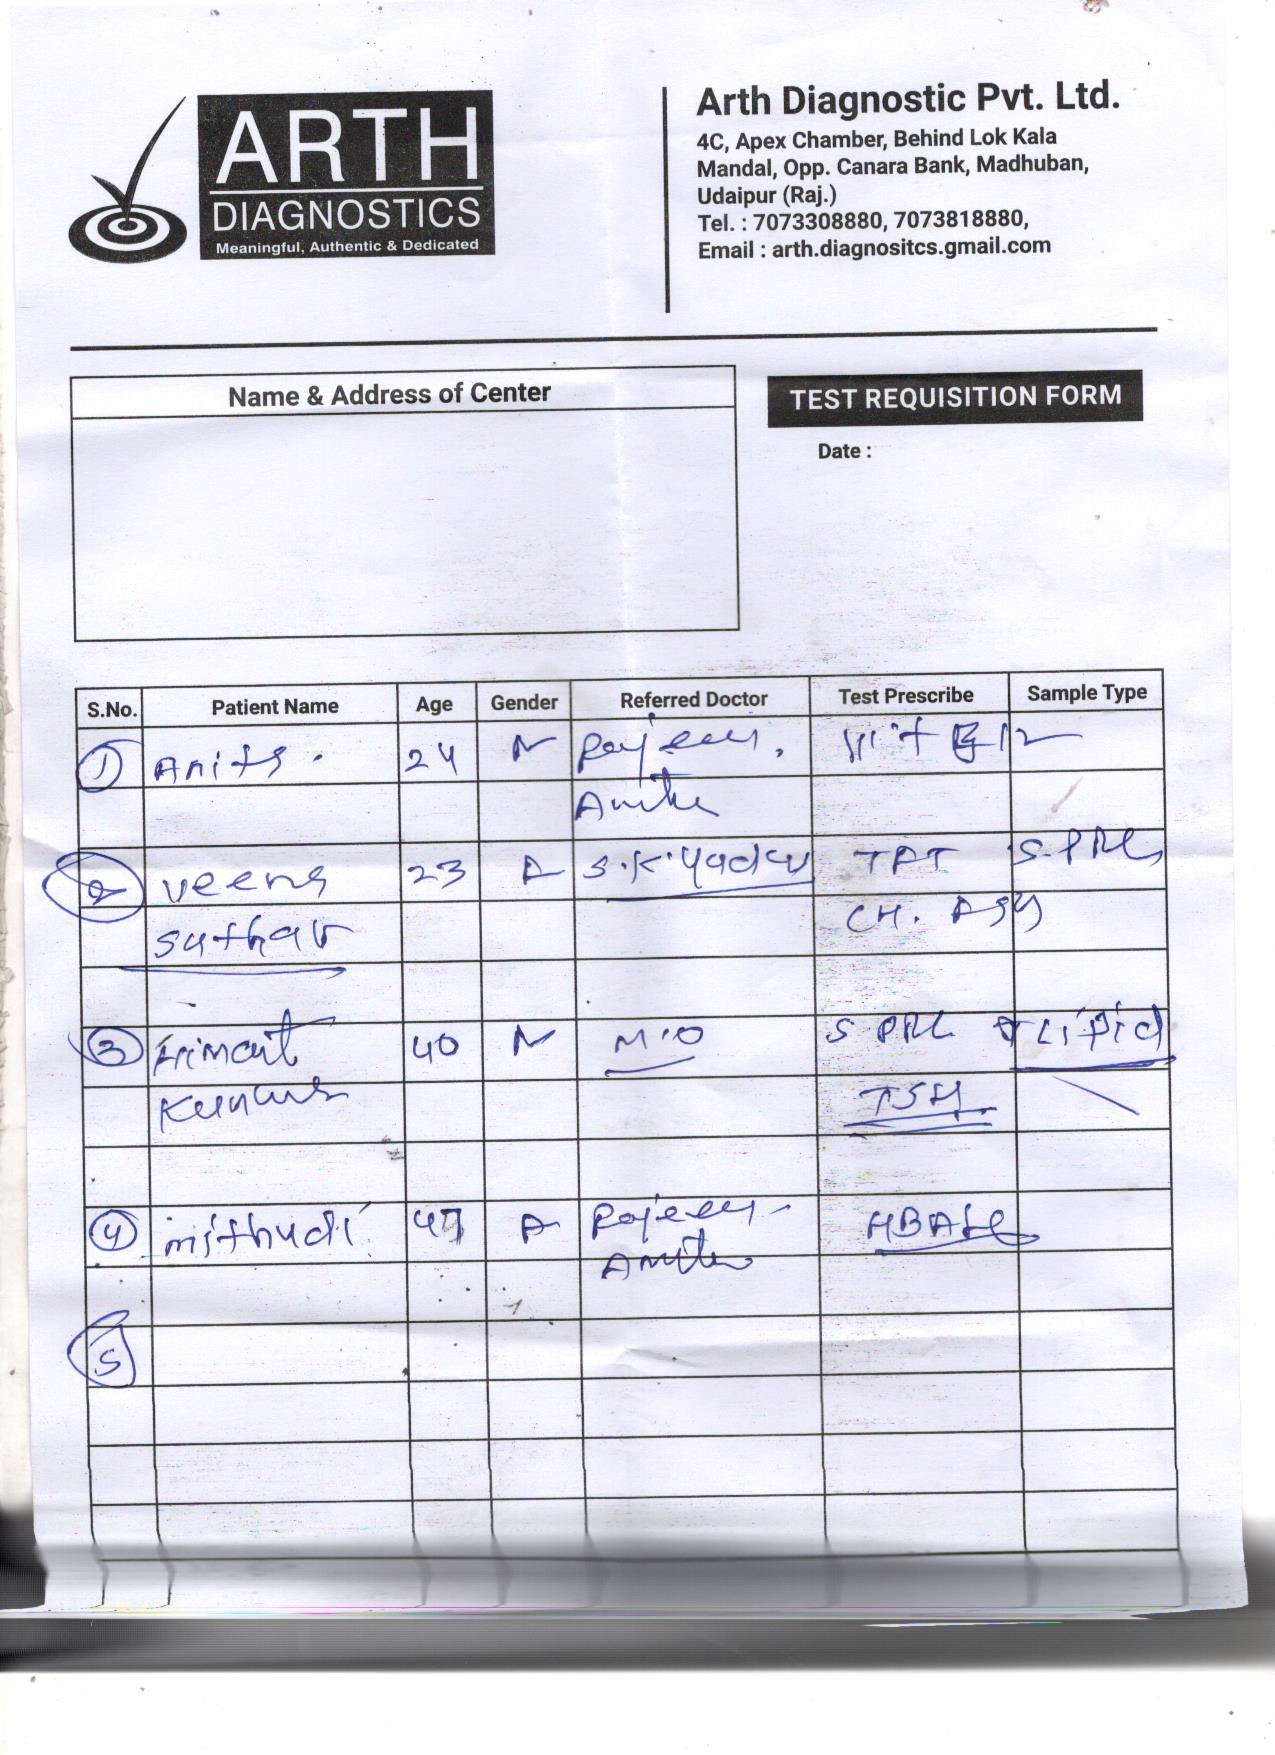 ARTH
DIAGNOSTICS
Meaningful, Authentic & Dedicated
Arth Diagnostic Pvt. Ltd.
4C, Apex Chamber, Behind Lok Kala
Mandal, Opp. Canara Bank, Madhuban,
Udaipur (Raj.)
Tel. : 7073308880, 7073818880,
Email : arth.diagnositcs.gmail.com
Name & Address of Center
TEST REQUISITION FORM
Date :
S.No. Patient Name Age Gender Referred Doctor Test Prescribe Sample Type
1 24 Vit B12
2 veena 23 S.K. Yadav S. PRL,
suthar CH.
3 40 M.O S PRL Lipid
TSH
4 mithudi
5